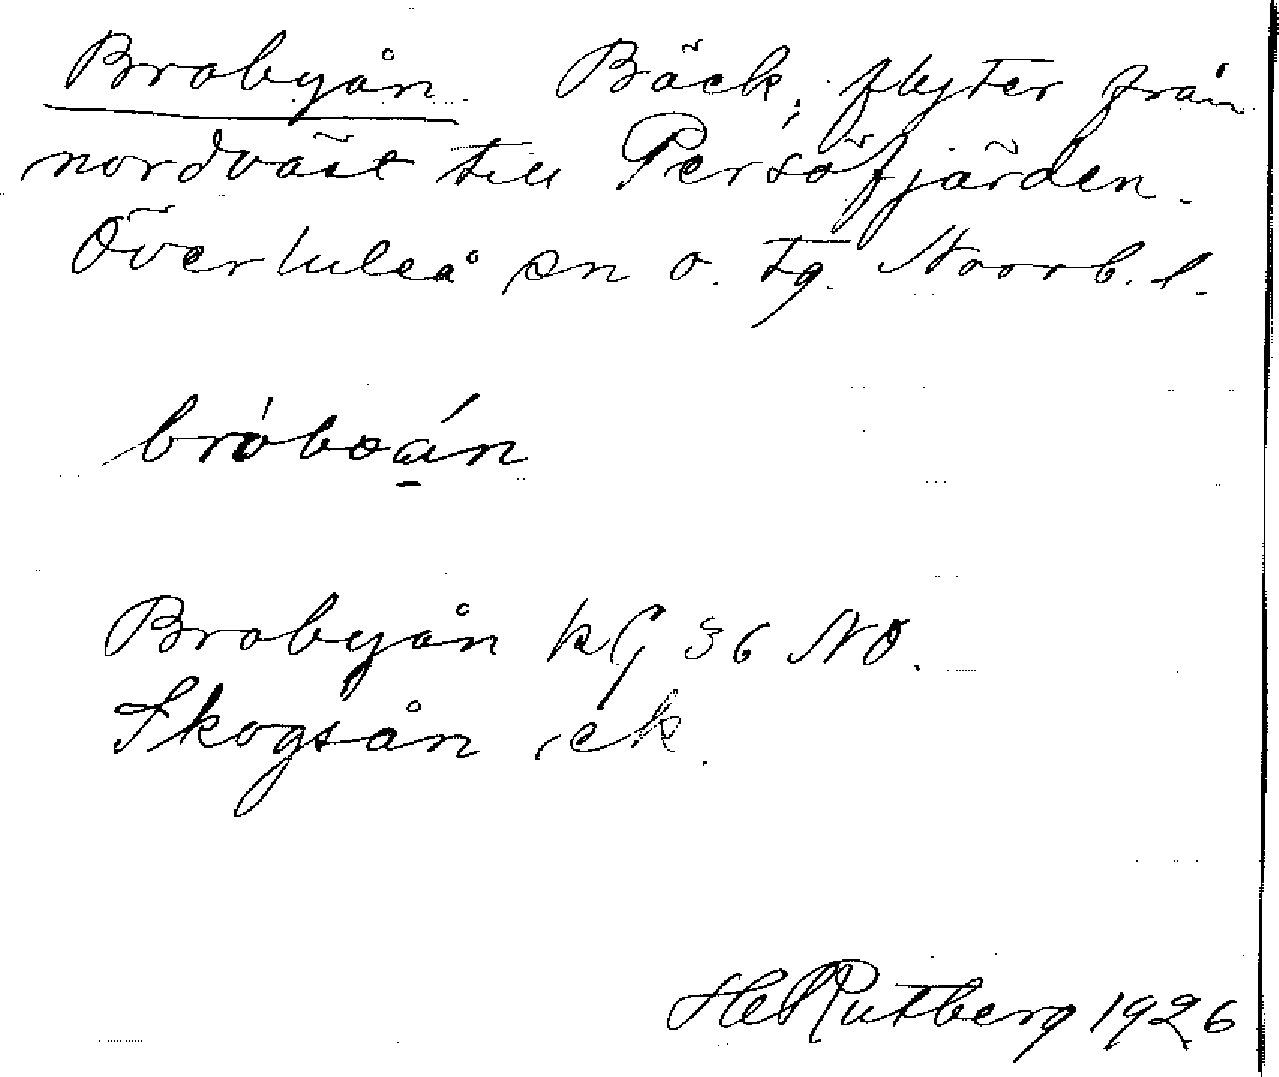 Brobyån Bäck, flyter från
nordväst till Persöfjärden.
Överluleå sn o. tg. Norrb. l.
bróboa̱ń
Brobyån kG 36 NO.
Skogsån ek.
HRutberg 1926